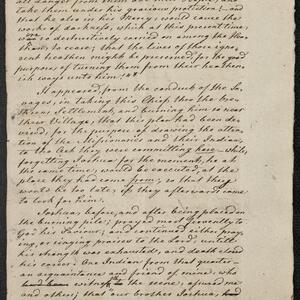 all danger from them and their People, and
take them under his gracious protection, and
that he also in his Mercy, would cause the
work of darkness, which at this present time
was so destructively carried on among the Hea-
then, to cease; that the lives of those igno-
rent heathen might be preserved, for the good
purpose of turning them from their heathen-
ish ways unto him!"
It appeared, from the conduct of the Sa-
vages, in taking this Chief thro the bre-
threns Settlement, and burning him so near
their Village, that this plan had been de-
vised, for the purpose of drawing the atten-
tion of the Missionaries and their Indians,
to the Act they were committing here while,
forgetting Joshua for the moment, he at
the same time, would be executed, at the
place they had come from; so that those
would be too late, if they afterwards came
to look for him.
Joshua, before, and after being placed on
the burning pile, prayed most fervently to
God his Saviour; and continued either pray-
ing, or singing praises to the Lord, until
his strength was exhausted, and death closed
his voice. One Indian from that quarter—
an acquaintance and friend of mine, who
had been witness to the scene, assured me
and others; that our brother Joshua, had